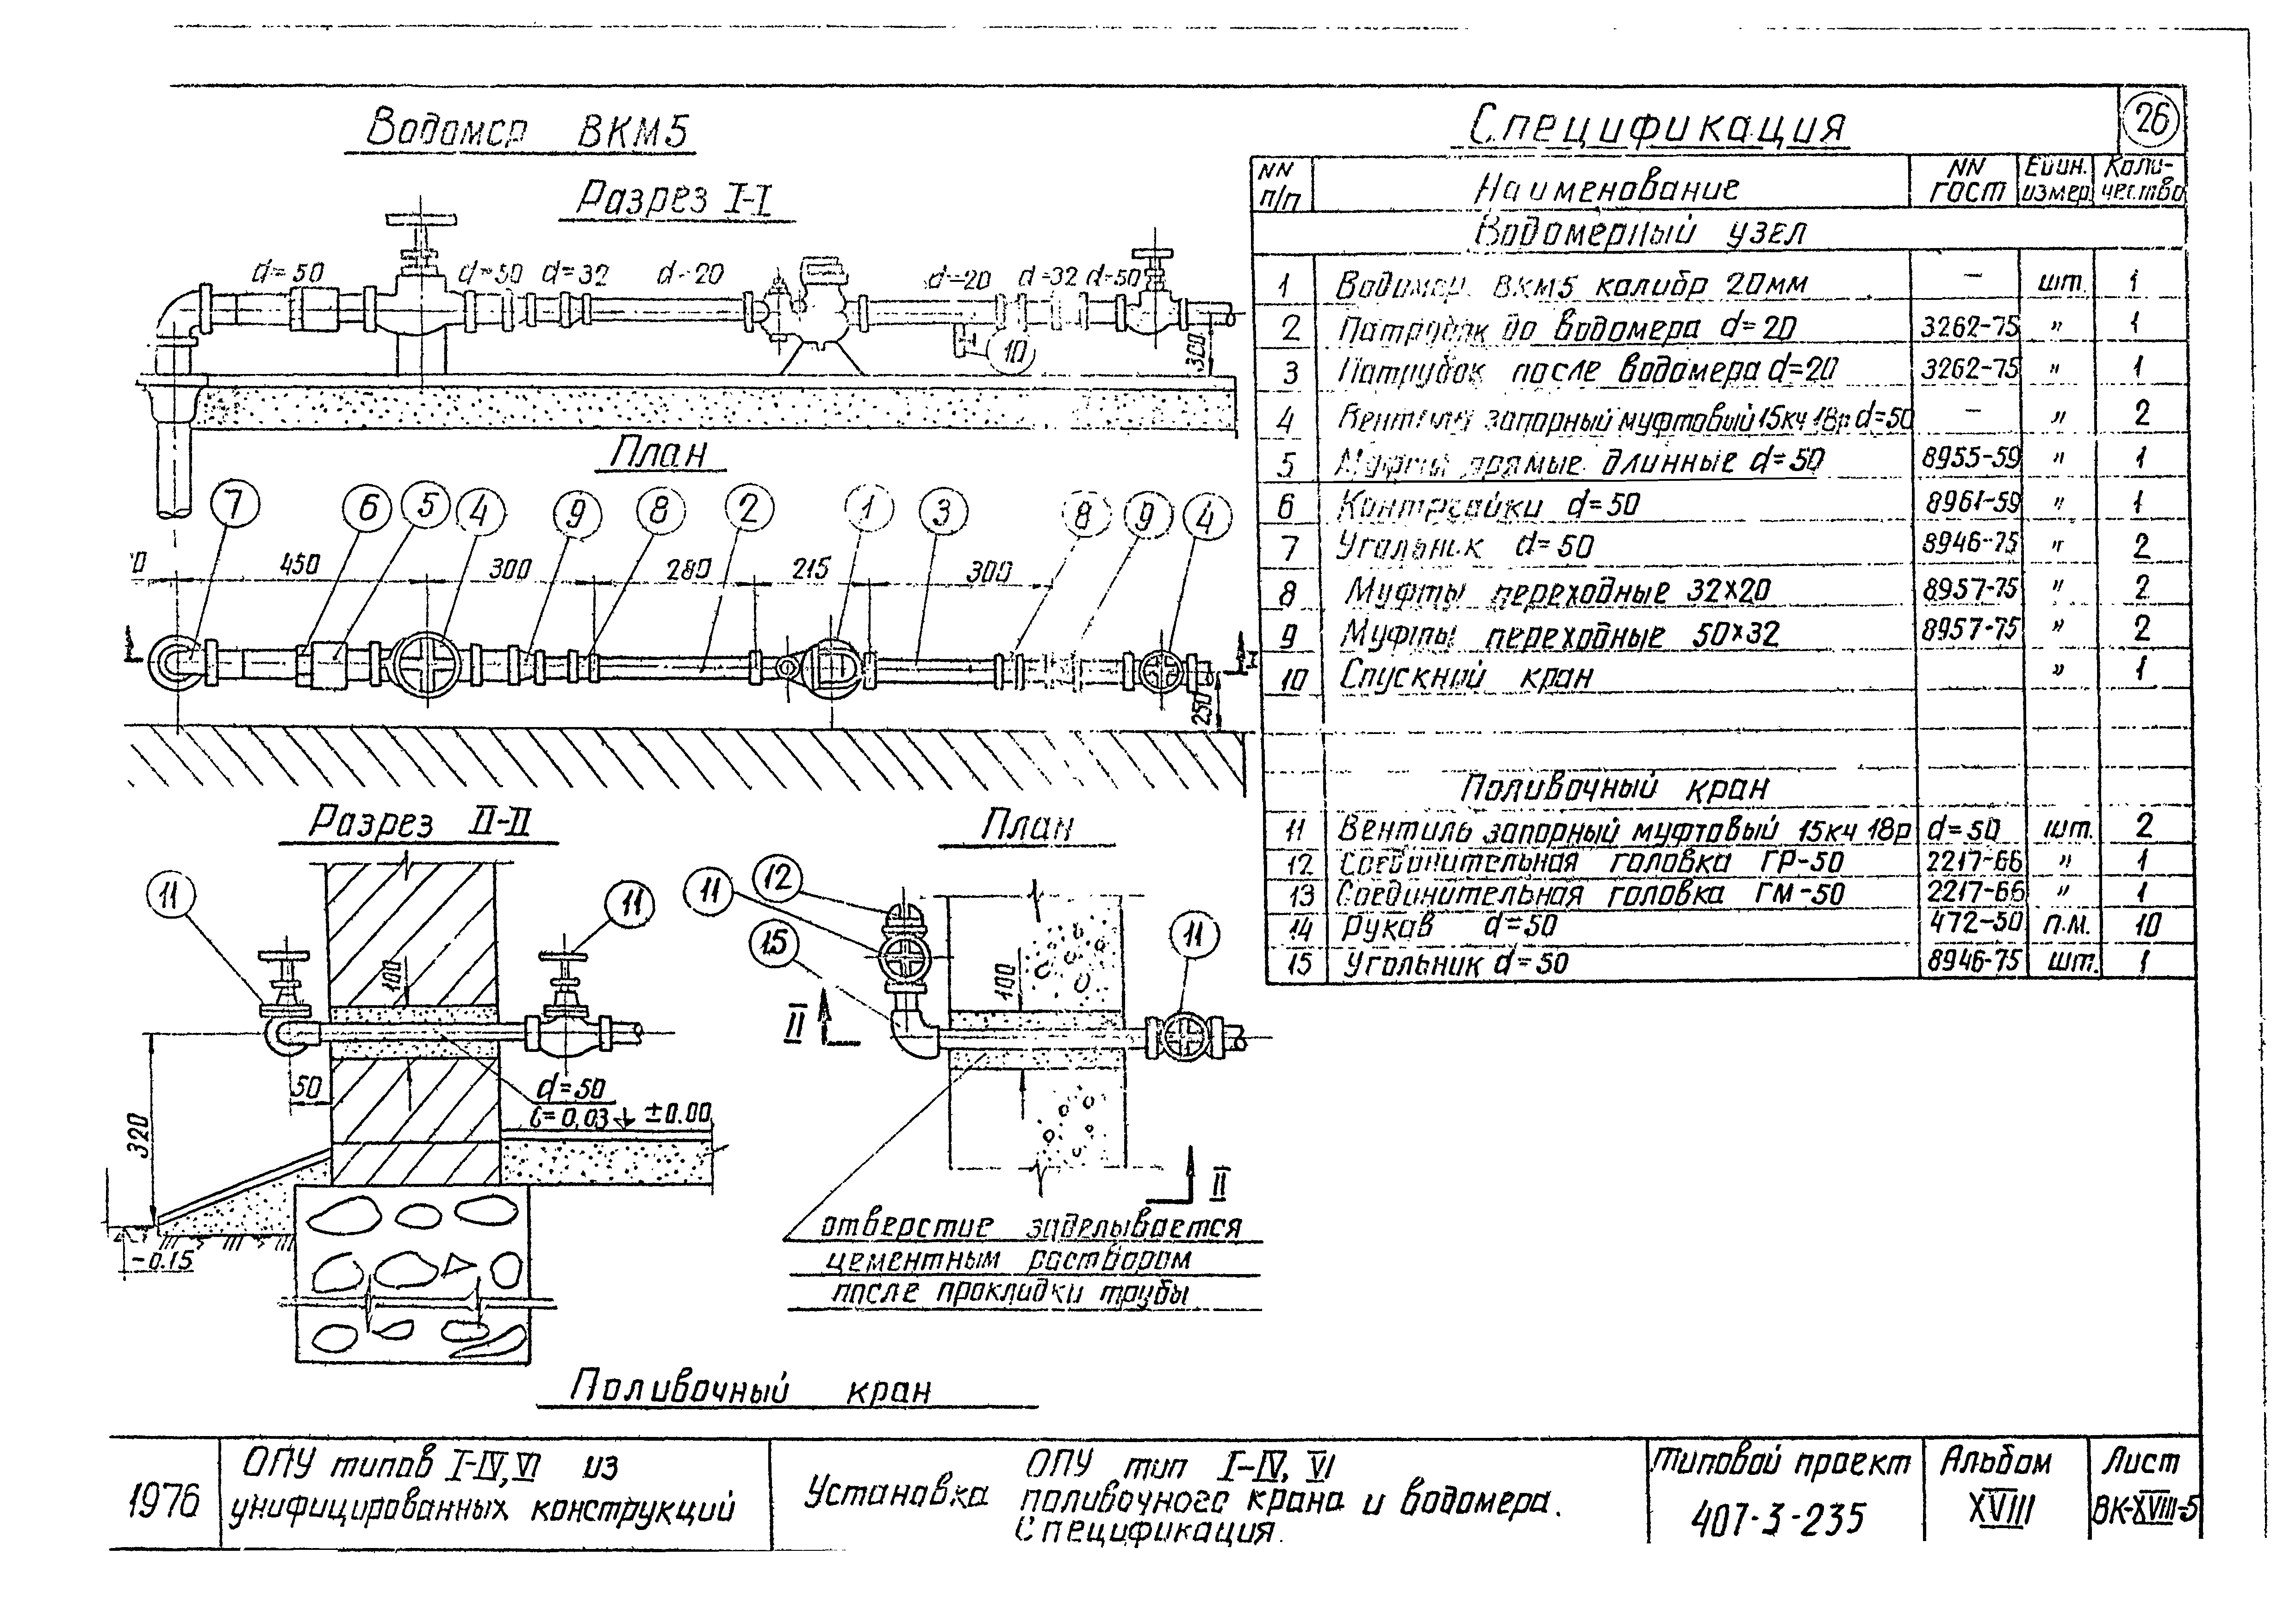 26
Водомер ВКМ5
Разрез I-I
d=50 d=50 d=32 d=20 d=20 d=32 d=50
10
300
План
7 6 5 4 9 8 2 1 3 8 9 4
450 300 280 215 300
250
Разрез II-II
11 11
100
50
320
d=50
i=0,03 ±0.00
-0.15
План
12
11
15
11
100
II
II
отверстие заделывается
цементным раствором
после прокладки трубы
Поливочный кран
Спецификация
NN п/п Наименование NN ГОСТ Един. измер. Коли-чество
Водомерный узел
1 Водомер ВКМ5 калибр 20мм – шт. 1
2 Патрубок до водомера d=20 3262-75 " 1
3 Патрубок после водомера d=20 3262-75 " 1
4 Вентиль запорный муфтовый 15кч 18р d=50 – " 2
5 Муфты прямые длинные d=50 8955-59 " 1
6 Контргайки d=50 8961-59 " 1
7 Угольник d=50 8946-75 " 2
8 Муфты переходные 32х20 8957-75 " 2
9 Муфты переходные 50х32 8957-75 " 2
10 Спускной кран " 1
Поливочный кран
11 Вентиль запорный муфтовый 15кч 18р d=50 шт. 2
12 Соединительная головка ГР-50 2217-66 " 1
13 Соединительная головка ГМ-50 2217-66 " 1
14 Рукав d=50 472-50 п.м. 10
15 Угольник d=50 8946-75 шт. 1
1976
ОПУ типов I-IV, VI из
унифицированных конструкций
ОПУ тип I-IV, VI
Установка поливочного крана и водомера.
Спецификация.
Типовой проект
407-3-235
Альбом
XVIII
Лист
ВК-XVIII-5